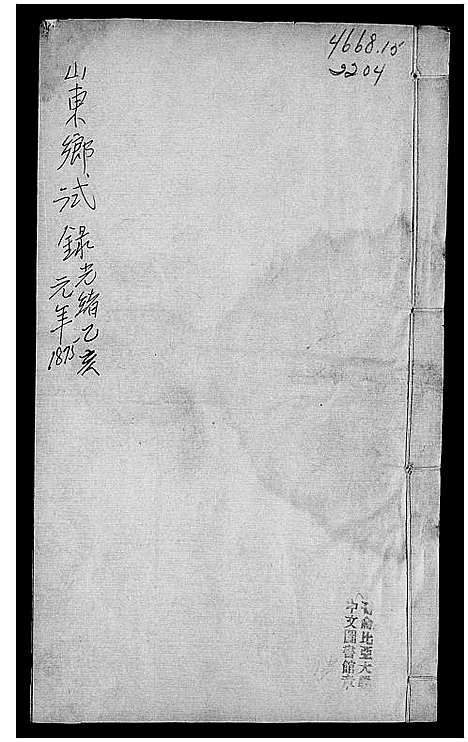 4668.15
2204
山東鄉試錄
光緒乙亥
元年
1875
哥倫比亞大學
中文圖書館章